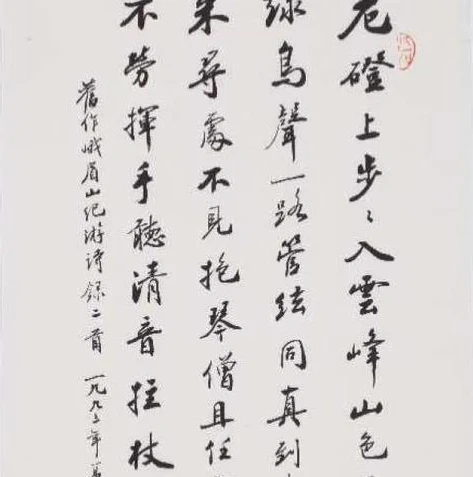 磴上步步入雲峰山色
鳥聲一路管絃同真到
尋處不見抱琴僧且任
不勞揮手聽清音拄杖
舊作峨眉山纪游詩錄二首 一九九